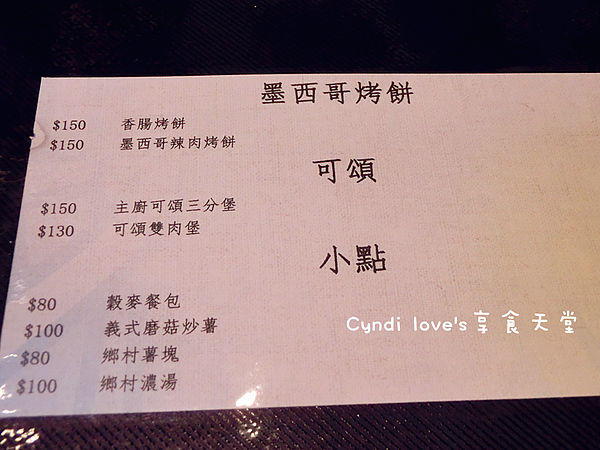 墨西哥烤餅
$150 香腸烤餅
$150 墨西哥辣肉烤餅
可頌
$150 主廚可頌三分堡
$130 可頌雙肉堡
小點
$80 穀麥餐包
$100 義式磨菇炒薯
$80 鄉村薯塊
$100 鄉村濃湯
Cyndi love's享食天堂